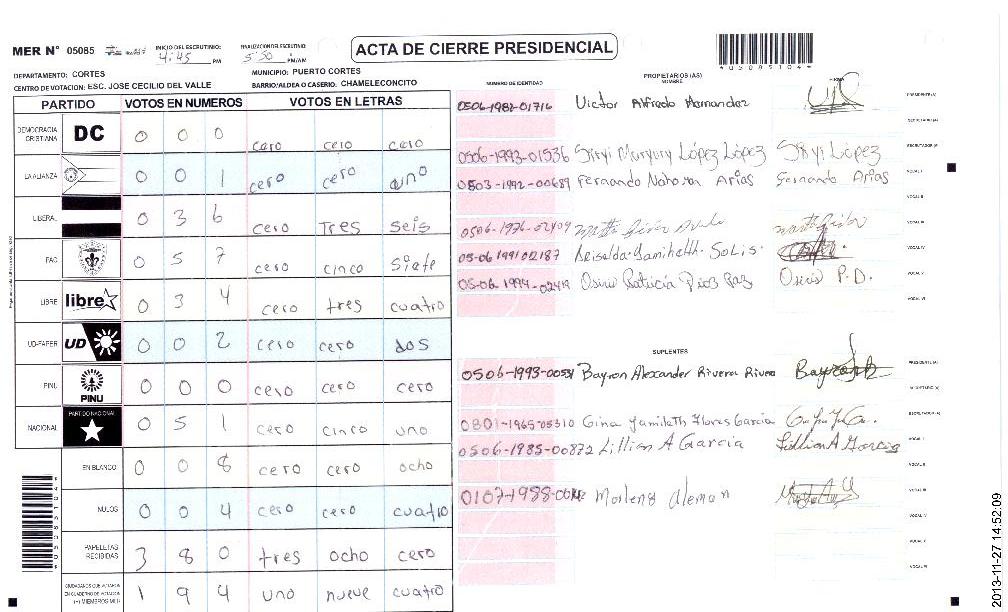 MER N° 05085
INICIO DEL ESCRUTINIO: 4:45 PM
FINALIZACION DEL ESCRUTINIO: 5:50 PM/AM
ACTA DE CIERRE PRESIDENCIAL
DEPARTAMENTO: CORTES
MUNICIPIO: PUERTO CORTES
CENTRO DE VOTACION: ESC. JOSE CECILIO DEL VALLE
BARRIO/ALDEA O CASERIO: CHAMELECONCITO
PARTIDO VOTOS EN NUMEROS VOTOS EN LETRAS
DEMOCRACIA CRISTIANA DC 0 0 0 cero cero cero
LA ALIANZA 0 0 1 cero cero uno
LIBERAL 0 3 6 cero Tres seis
PAC 0 5 7 cero cinco Siete
LIBRE libre 0 3 4 cero tres cuatro
UD-FAPER UD 0 0 2 cero cero dos
PINU PINU 0 0 0 cero cero cero
NACIONAL PARTIDO NACIONAL 0 5 1 cero cinco uno
EN BLANCO 0 0 8 cero cero ocho
NULOS 0 0 4 cero cero cuatro
PAPELETAS RECIBIDAS 3 8 0 tres ocho cero
CIUDADANOS QUE VOTARON EN CUADERNO DE VOTACION 1 9 4 uno nueve cuatro
NUMERO DE IDENTIDAD
PROPIETARIOS (AS)
NOMBRE
FIRMA
0506-1982-01716 Victor Alfredo Hernandez
PRESIDENTE (A)
SECRETARIO (A)
0506-1993-01536 Siryi Maryury López López Siryi López
ESCRUTADOR (A)
0503-1992-00689 Fernando Arias Fernando Arias
VOCAL I
VOCAL II
0506-1976-02409
VOCAL III
05-06 1991 02187 Solis.
VOCAL IV
05-06 1994-02419 Osiris Patricia Osiris P.D.
VOCAL V
VOCAL VI
SUPLENTES
PRESIDENTE (A)
0506-1993-00531 Bayron Alexander Rivera Rivera
SECRETARIO (A)
0801-1965-05310 Gina Yamileth Flores García
ESCRUTADOR (A)
0506-1985-00872 Lillian A Garcia Lillian A Garcia
VOCAL I
VOCAL II
Marlene Aleman
VOCAL III
VOCAL IV
VOCAL V
VOCAL VI
2013-11-27 14:52:09